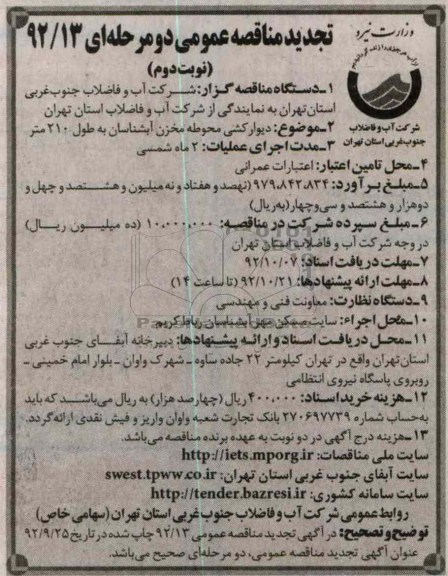 وزارت نیرو
تجدید مناقصه عمومی دو مرحله‌ای ۹۲/۱۳
(نوبت دوم)
شرکت آب و فاضلاب
جنوب غربی استان تهران
۱-دستگاه مناقصه گزار: شرکت آب و فاضلاب جنوب غربی
استان تهران به نمایندگی از شرکت آب و فاضلاب استان تهران
۲-موضوع: دیوارکشی محوطه مخزن آبشناسان به طول ۲۱۰ متر
۳-مدت اجرای عملیات: ۲ ماه شمسی
۴-محل تامین اعتبار: اعتبارات عمرانی
۵-مبلغ برآورد: ۹۷۹،۸۴۲،۸۳۴ (نهصد و هفتاد و نه میلیون و هشتصد و چهل و
دو هزار و هشتصد و سی و چهار) به ریال)
۶-مبلغ سپرده شرکت در مناقصه: ۱۰،۰۰۰،۰۰۰ (ده میلیون ریال)
در وجه شرکت آب و فاضلاب استان تهران
۷-مهلت دریافت اسناد: ۹۲/۱۰/۰۷
۸-مهلت ارائه پیشنهادها: ۹۲/۱۰/۲۱ (تا ساعت ۱۴)
۹-دستگاه نظارت: معاونت فنی و مهندسی
۱۰-محل اجراء: سایت مسکن مهر آبشناسان رباط کریم
۱۱-محل دریافت اسناد و ارائه پیشنهادها: دبیرخانه آبفای جنوب غربی
استان تهران واقع در تهران کیلومتر ۲۲ جاده ساوه - شهرک واوان - بلوار امام خمینی -
روبروی پاسگاه نیروی انتظامی
۱۲-هزینه خرید اسناد: ۴۰۰،۰۰۰ ریال (چهارصد هزار) به ریال می‌باشد که باید
به حساب شماره ۲۷۰۶۹۷۷۳۹ بانک تجارت شعبه واوان واریز و فیش نقدی ارائه گردد.
۱۳-هزینه درج آگهی در دو نوبت به عهده برنده مناقصه می‌باشد.
سایت ملی مناقصات: http://iets.mporg.ir
سایت آبفای جنوب غربی استان تهران: swest.tpww.co.ir
سایت سامانه کشوری: http://tender.bazresi.ir
روابط عمومی شرکت آب و فاضلاب جنوب غربی استان تهران (سهامی خاص)
توضیح و تصحیح: در آگهی تجدید مناقصه عمومی ۹۲/۱۳ چاپ شده در تاریخ ۹۲/۹/۲۵
عنوان آگهی تجدید مناقصه عمومی، دو مرحله‌ای صحیح می‌باشد.